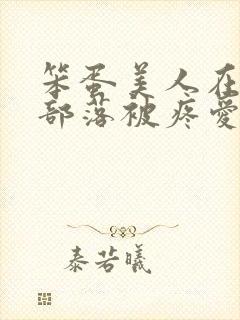 笨蛋美人在
部落被疼爱
泰若曦